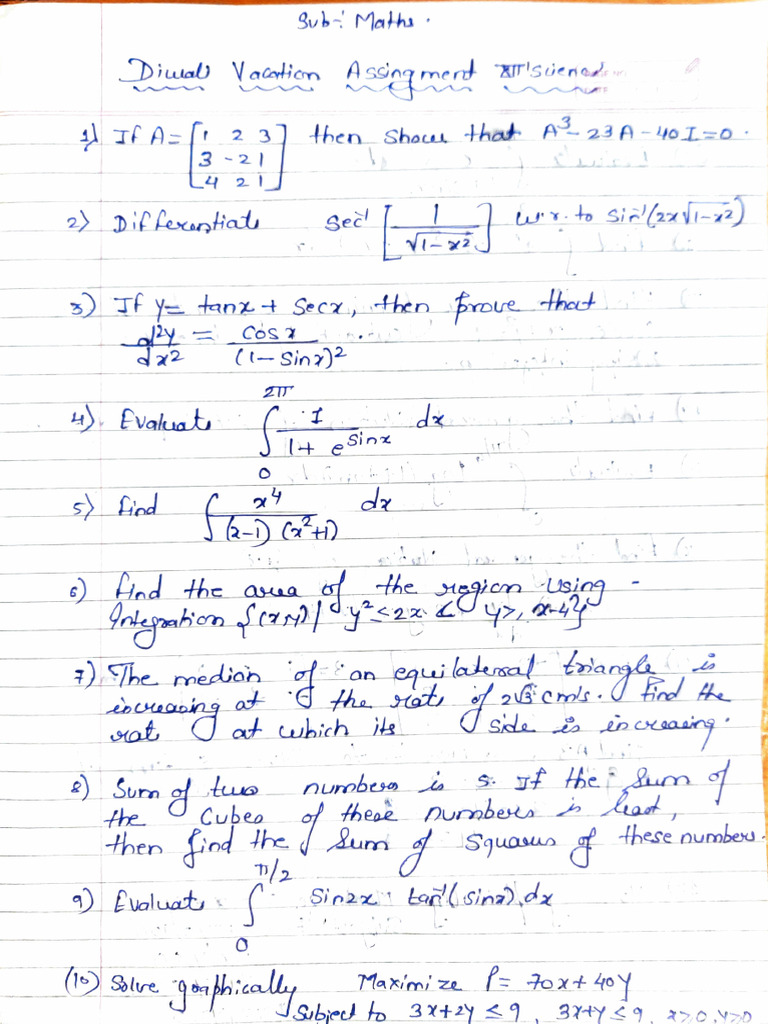 Sub-: Maths.
Diwali Vacation Assingment XII Science
1) If A = [1 2 3 then show that A³ - 23A - 40I = 0.
3 -2 1
4 2 1]
2) Differentiate sec⁻¹ [1/√1-x²] w.r. to sin⁻¹(2x√1-x²)
3) If y = tanx + secx, then prove that
d²y/dx² = cosx/(1-sinx)².
4) Evaluate ∫₀^2π 1/(1+e^sinx) dx
5) find ∫ x⁴/((x-1)(x²+1)) dx
6) find the area of the region using -
Integration {(x,y) | y² ≤ 2x & y ≥, x-4}
7) The median of an equilateral triangle is
increasing at the rate of 2√3 cm/s. Find the
rate at which its side is increasing.
8) Sum of two numbers is 5. If the sum of
the cubes of these numbers is least,
then find the sum of squares of these numbers.
9) Evaluate ∫₀^π/2 sin2x tan⁻¹(sinx).dx
(10) Solve graphically Maximize P = 70x + 40y
Subject to 3x+2y ≤ 9, 3x+y ≤ 9, x≥0, y≥0